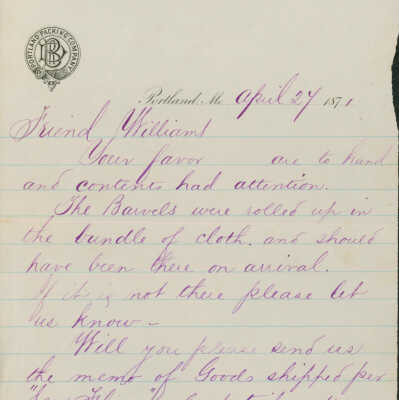 PORTLAND PACKING COMPANY
Portland, Me. April 27 1871
Friend Williams
Your favor are to hand
and contents had attention.
The Barvels were rolled up in
the bundle of cloth. and should
have been there on arrival.
If it is not there please let
us know -
Will you please send us
the memo of Goods shipped per